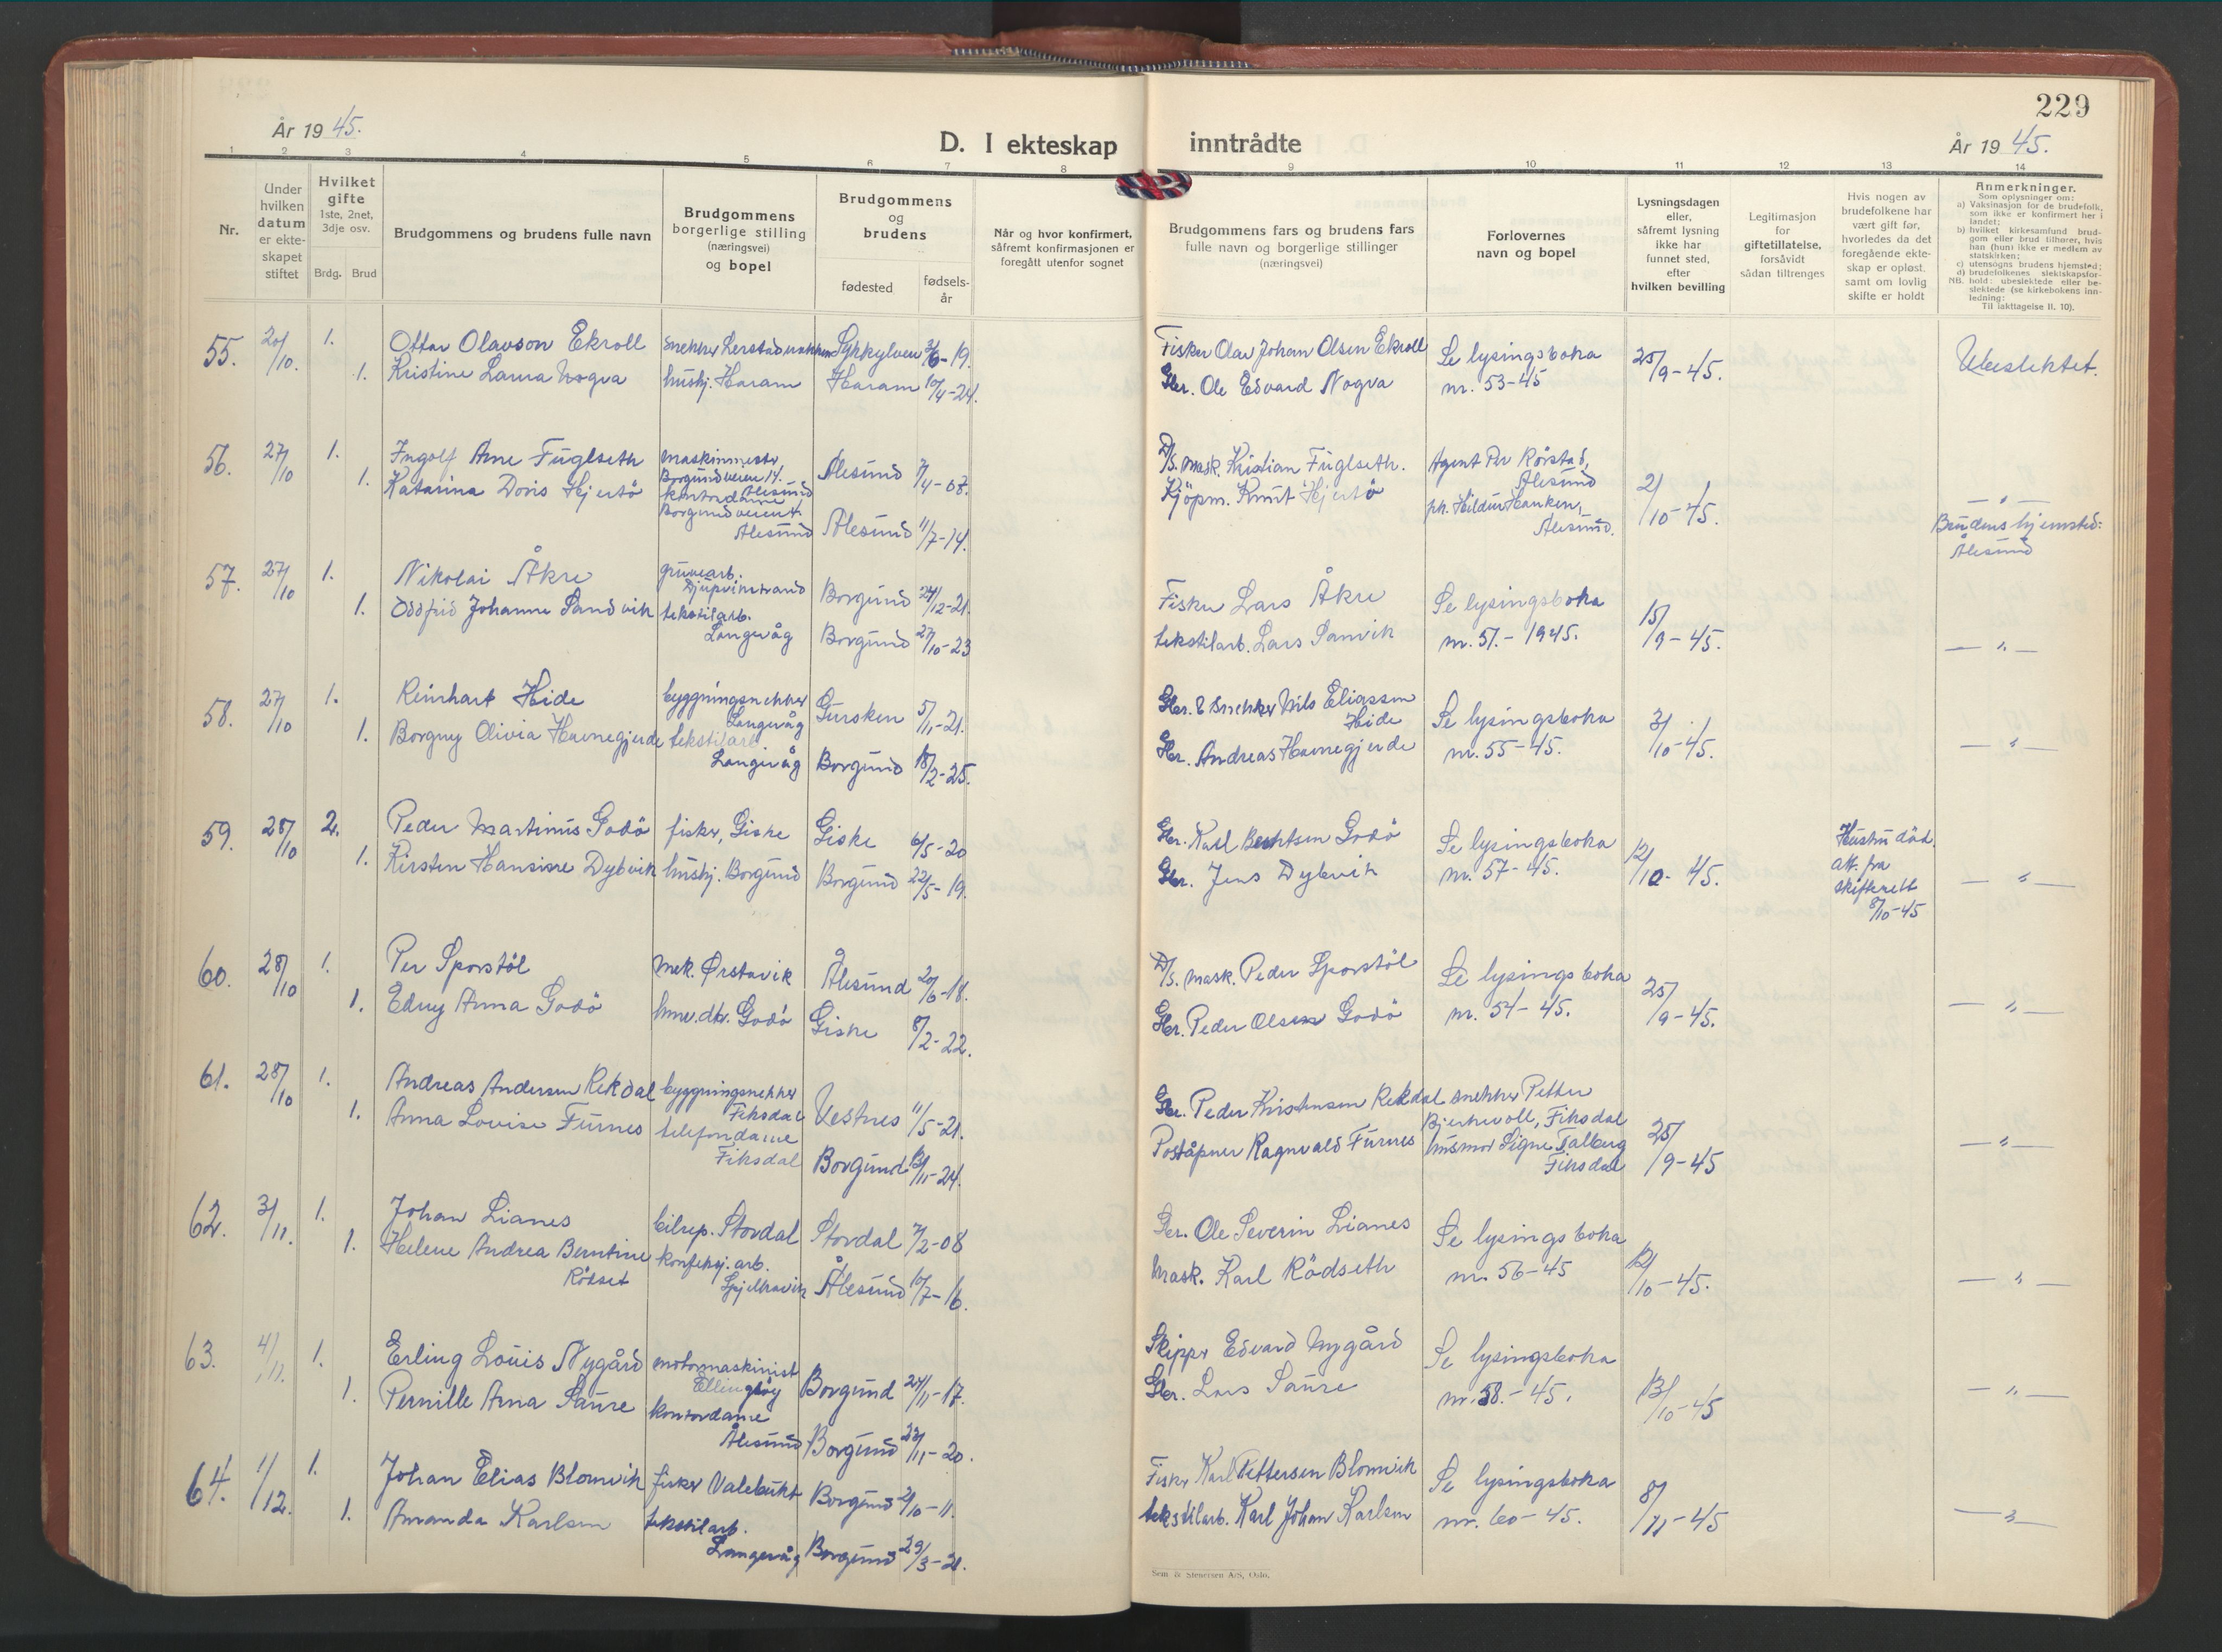 229
År 1945.
D. I ekteskap inntrådte
År 1945.
1 2 3 4 5 6 7 8 9 10 11 12 13 14
Nr.
Under
hvilken
datum
er ekte-
skapet
stiftet
Hvilket
gifte
1ste, 2net,
3dje osv.
Brdg. Brud
Brudgommens og brudens fulle navn
Brudgommens
borgerlige stilling
(næringsvei)
og bopel
Brudgommens
og
brudens
fødested
fødsels-
år
Når og hvor konfirmert,
såfremt konfirmasjonen er
foregått utenfor sognet
Brudgommens fars og brudens fars
fulle navn og borgerlige stillinger
(næringsvei)
Forlovernes
navn og bopel
Lysningsdagen
eller,
såfremt lysning
ikke har
funnet sted,
efter
hvilken bevilling
Legitimasjon
for
giftetillatelse,
forsåvidt
sådan tiltrenges
Hvis nogen av
brudefolkene har
vært gift før,
hvorledes da det
foregående ekte-
skap er opløst,
samt om lovlig
skifte er holdt
Anmerkninger.
Som oplysninger om:
a) Vaksinasjon for de brudefolk,
som ikke er konfirmert her i
landet;
b) hvilket kirkesamfund brud-
gom eller brud tilhører, hvis
han (hun) ikke er medlem av
statskirken;
c) utensogns brudens hjemsted;
d) brudefolkenes slektskapsfor-
hold: ubeslektede eller be-
slektede (se kirkebokens inn-
ledning:
NB. Til iakttagelse II. 10).
55. 20/10. 1. Ottar Olavson Ekroll snekker Lerstad Sykkylven 3/6-19. Fisker Olav Johan Olsen Ekroll Se lysingsboka 25/9-45. Ubeslektet.
1. Kristine Laura Nogva hushj. Haram Haram 10/4-24. Gbr. Ole Edvard Nogva nr. 53-45
56. 27/10 1. Ingolf Arne Fuglseth maskinmester D/S. mask. Kristian Fuglseth. Agent Per Rörstad,
Borgundveien 14. Ålesund 7/4-07. Ålesund
1. Katarina Doris Hjertö Ålesund Kjöpm. Knut Hjertö 2/10-45. — " —
kontordame frk. Hildur Hanken,
Borgundveien Ålesund 11/7-14. Ålesund. Brudens hjemsted:
Ålesund Ålesund
57. 27/10 1. Nikolai Åkre gruvearb.
Djupvinstrand Borgund 24/12-21. Fisker Lars Åkre Se lysingsboka 15/9-45. — " —
1. Oddfrid Johanne Sandvik tekstilarb.
Langevåg Borgund 27/10-23 tekstilarb. Lars Sanvik nr. 51.-1945.
58. 27/10 1. Reinhart Hide byggningsnekker
Langevåg Gursken 5/11-21. Gbr. & snekker Nils Eliassen
Hide Se lysingsboka 3/10-45. — " —
1. Borgny Olivia Havnegjerde tekstilarb
Langevåg Borgund 18/2-25. Gbr. Andreas Havnegjerde nr. 55-45.
59. 28/10 2. Peder Martinus Godö fisker, Giske Giske 6/5-20 Gbr. Karl Berntsen Godö Se lysingsboka 12/10-45. Hustru död.
att. fra
skifterett
8/10-45 — " —
1. Kirsten Hansine Dybvik hushj. Borgund Borgund 22/5-19. Gbr. Jens Dybvik nr. 57-45.
60. 28/10 1. Per Sporstöl mek. Ørstavik Ålesund 20/6-18. D/S. mask. Peder Sporstöl Se lysingsboka 25/9-45. — " —
1. Edny Anna Godö hmv.dtr. Godö Giske 8/2-22. Gbr. Peder Olsen Godö nr. 54-45.
61. 28/10 1. Andreas Andersen Rekdal byggningsnekker
Fiksdal Vestnes 11/5-21. Gbr. Peder Kristensen Rekdal snekker Petter
Bjerkevoll, Fiksdal 25/9-45 — " —
1. Anna Lovise Furnes telefondame
Fiksdal Borgund 13/11-24. Poståpner Ragnvald Furnes husmor Signe Talberg
Fiksdal
62. 3/11. 1. Johan Lianes bilrep. Stordal Stordal 7/2-08 Gbr. Ole Severin Lianes Se lysingsboka 12/10-45. — " —
1. Helene Andrea Berntine
Rödset konfeksj. arb.
Spjelkavik Ålesund 10/7-16. Mask. Karl Rödseth nr. 56-45
63. 4/11. 1. Erling Louis Nygård motormaskinist
Ellingsöy Borgund 24/11-17. Skipper Edvard Nygård Se lysingsboka 13/10-45 — " —
1. Pernille Arna Saure kontordame
Ålesund Borgund 23/11-20. Gbr. Lars Saure nr. 58.-45.
64. 1/12. 1. Johan Elias Blomvik fisker Valebukt Borgund 2/10-11. Fisker Karl Pettersen Blomvik Se lysingsboka 8/11-45 — " —
1. Amanda Karlsen tekstilarb.
Langevåg Borgund 29/3-21. tekstilarb. Karl Johan Karlsen nr. 60-45.
Sem & Stenersen A/S, Oslo.